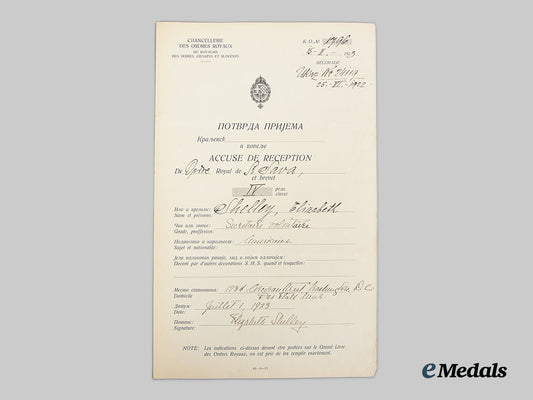 CHANCELLERIE
DES ORDRES ROYAUX
DU ROYAUME
DES SERBES, CROATES ET SLOVÈNES
K.O. №
1923
BELGRADE
25. - 1922
ПОТВРДА ПРИЈЕМА
Краљевск
и повеље
ACCUSE DE RECEPTION
De Ordre Royal de S. Sava,
et brevet
IV реда
classe
Име и презиме: Shelley, Elizabeth
Nom et prénoms:
Чин или звање: Secrétaire volontaire
Grade, profession:
Поданство и народност: Américaine
Sujet et nationalité:
Décoré par d'autres décorations S. H. S. quand et lesquelles:
Место становања: 1734 Washington D. C.
Domicile
Датум: Juillet 1, 1923
Date:
Потпис: Elizabeth Shelley
Signature:
NOTE: Les indications ci-dessus devant être portées sur le Grand Livre
des Ordres Royaux, on est prié de les remplir exactement.
eMedals